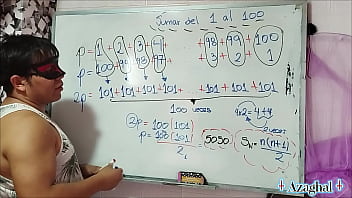 Sumar del 1 al 100
p = 1 + 2 + 3 + 4 + 98 + 99 + 100
p = 100 + 99 + 98 + 97 + 3 + 2 + 1
2p = 101 + 101 + 101 + 101 + ... + 101 + 101 + 101
100 veces
4x2 = 4+4
2 veces
2p = 100(101)
p = 100(101) = 5050 Sn = n(n+1)
2 2
Azaghal